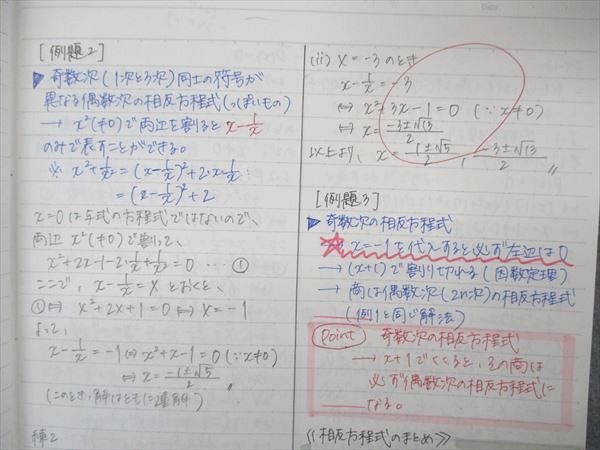 [例題2]
▶ 奇数次(1次と3次)同士の符号が
異なる偶数次の相反方程式(っぽいもの)
→ x²(≠0)で両辺を割ると x-1/x
のみで表すことができる。
※ x²+1/x² = (x-1/x)²+2・x・1/x
= (x-1/x)²+2
x=0は与式の方程式ではないので、
両辺 x²(≠0)で割って、
x²+2x-1-2・1/x+1/x²=0 … ①
ここで、x-1/x=Xとおくと、
①⇔ X²+2X+1=0 ⇔ X=-1
よって、
x-1/x=-1 ⇔ x²+x-1=0 (∵x≠0)
⇔ x=(-1±√5)/2 〃
(このとき、解はともに2重解)
(ii) X=-3のとき
x-1/x=-3
⇔ x²+3x-1=0 (∵x≠0)
⇔ x=(-3±√13)/2
以上より、x=(-1±√5)/2, (-3±√13)/2 〃
[例題3]
▶ 奇数次の相反方程式
→ x=-1を代入すると必ず左辺は0
→ (x+1)で割り切れる(因数定理)
→ 商は偶数次(2n次)の相反方程式
(例1と同じ解法)
Point 奇数次の相反方程式
→ x+1でくくると、その商は
必ず偶数次の相反方程式に
なる。
《相反方程式のまとめ》